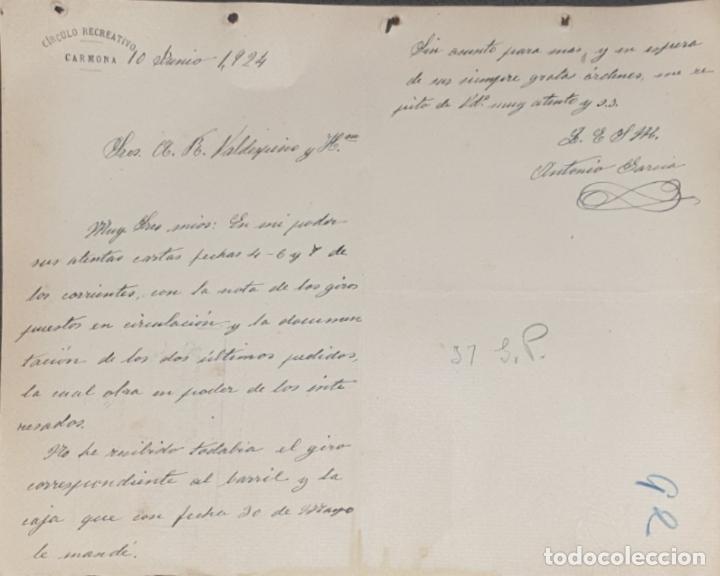 CIRCULO RECREATIVO
CARMONA
10 Junio 1,924
Sres. A. R. Valdespino y H.no
Muy Sres mios: En mi poder
sus atentas cartas fechas 4-6 y 7 de
los corrientes, con la nota de los giros
puestos en circulación y la documen
tación de los dos últimos pedidos,
la cual obra en poder de los inte
resados.
No he recibido todabia el giro
correspondiente al barril y la
caja que con fecha 30 de Mayo
le mandé.
Sin asunto para mas, y en espera
de sus siempre gratas órdenes, me re
pito de Vds. muy atento y s.s.
q. E S M.
Antonio Garcia
37 G.P.
todocoleccion.net